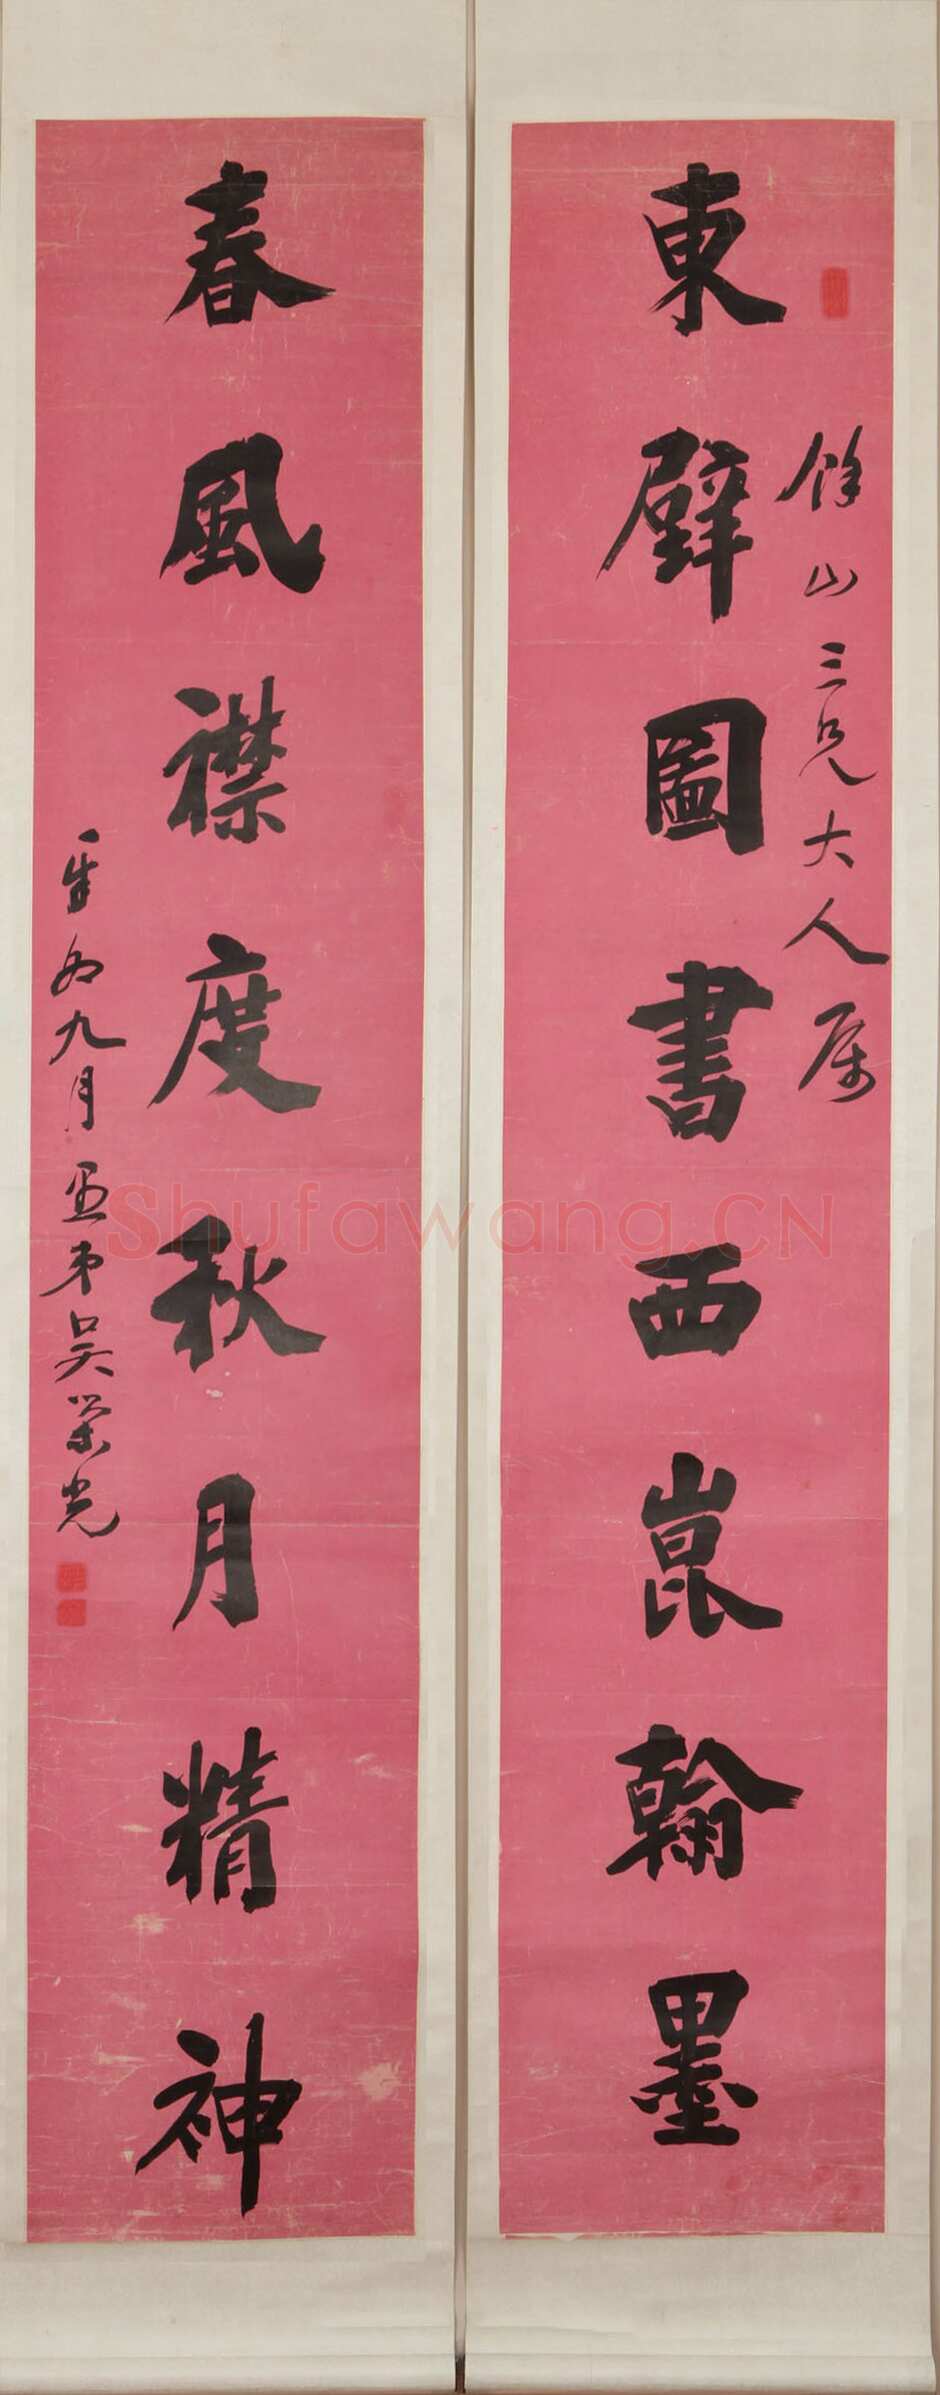 東壁圖書西崑翰墨
餘山三兄大人属
春風襟度秋月精神
辛卯九月愚弟吳榮光
Shufawang.CN